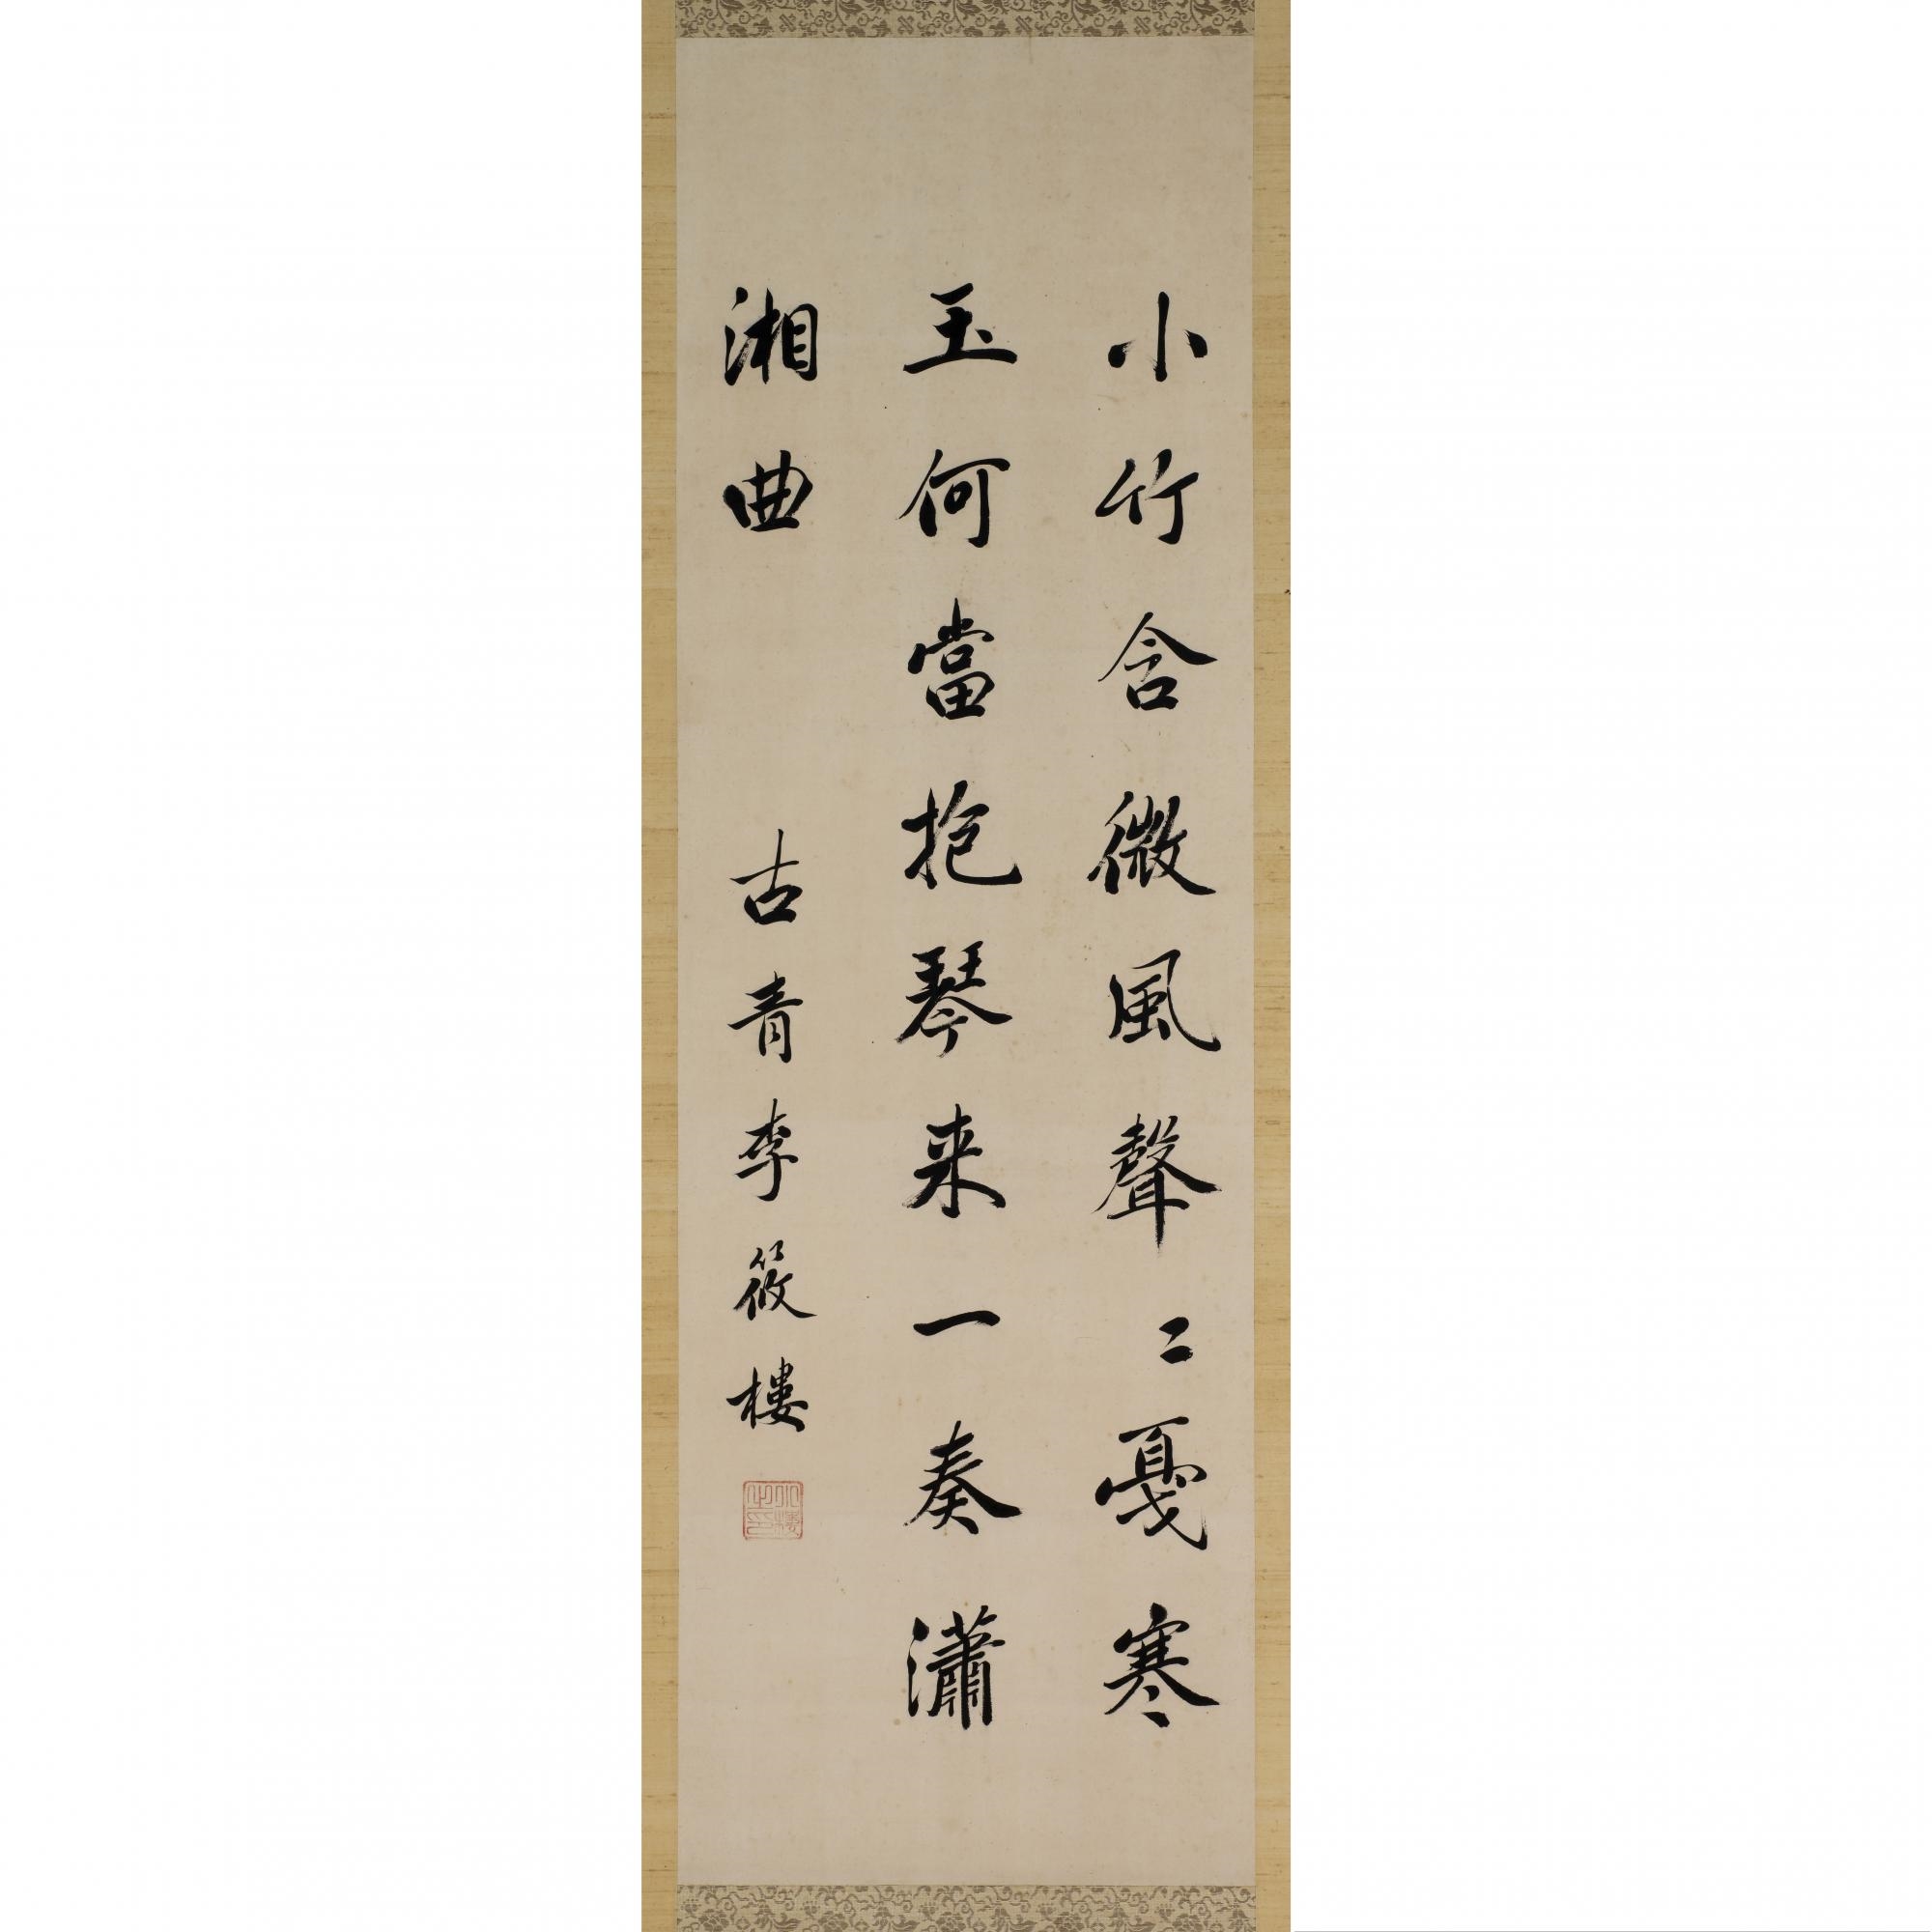 小竹含微風聲〻戛寒
玉何當抱琴来一奏瀟
湘曲
古青李筱樓